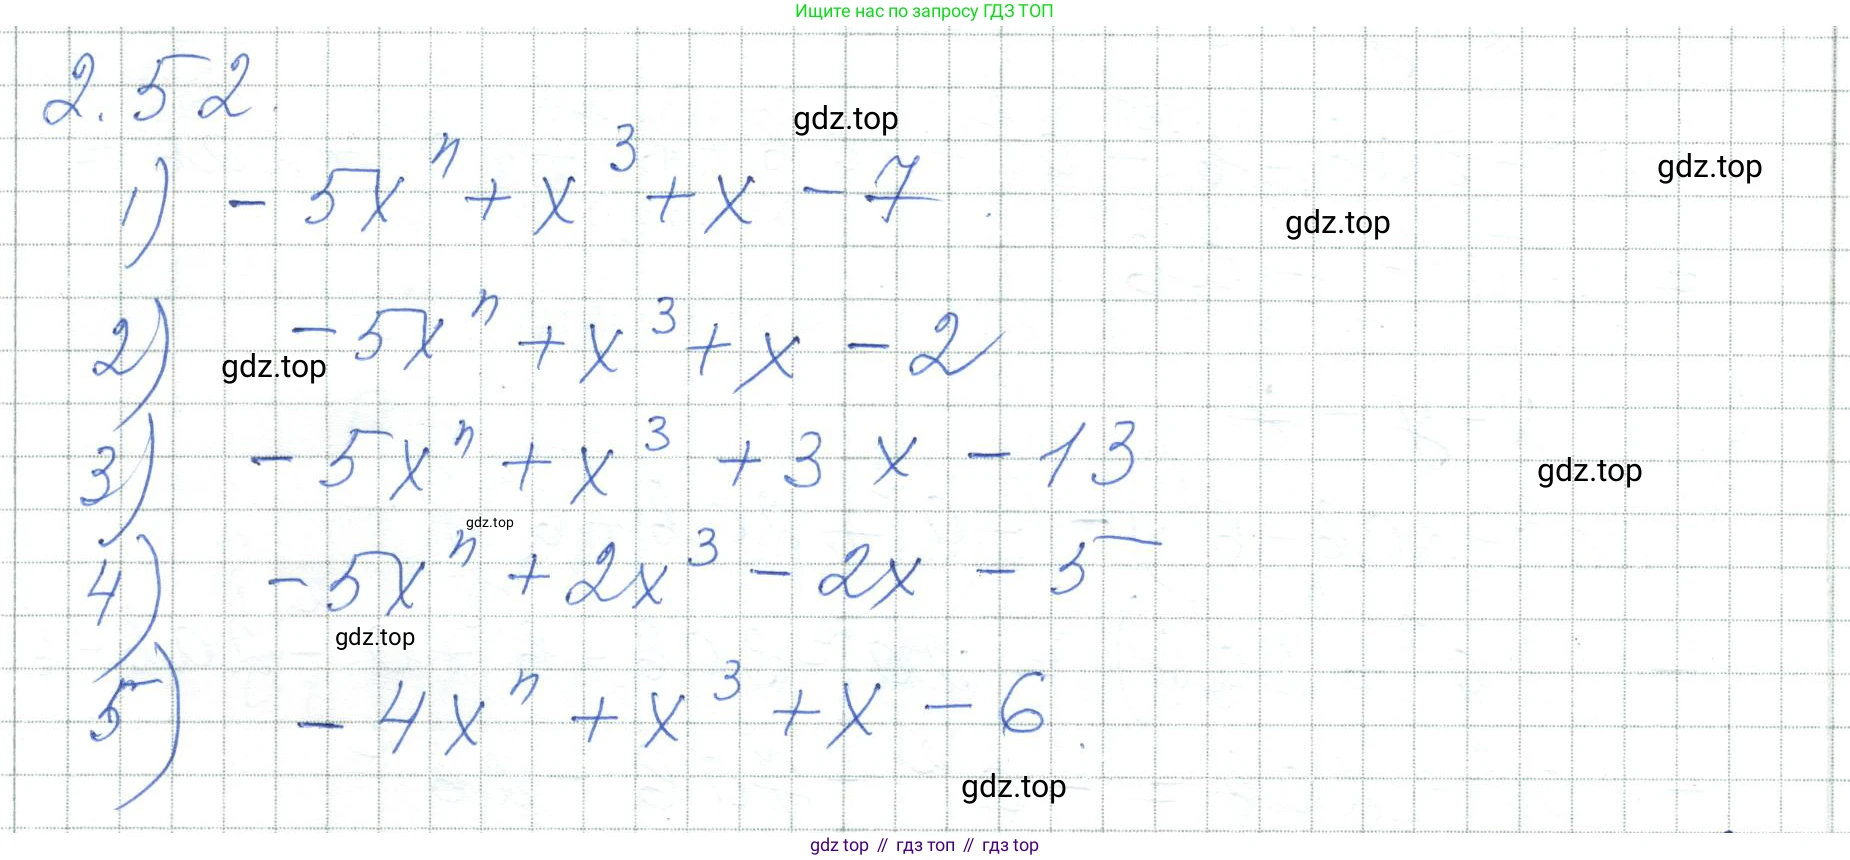 Ищите нас по запросу ГДЗ ТОП
2.52.
gdz.top
1) - 5xⁿ + x³ + x - 7.
gdz.top
gdz.top
2) - 5xⁿ + x³ + x - 2
gdz.top
3) - 5xⁿ + x³ + 3x - 13
gdz.top
gdz.top
4) - 5xⁿ + 2x³ - 2x - 5
gdz.top
5) - 4xⁿ + x³ + x - 6.
gdz.top
gdz top // гдз топ // гдз top